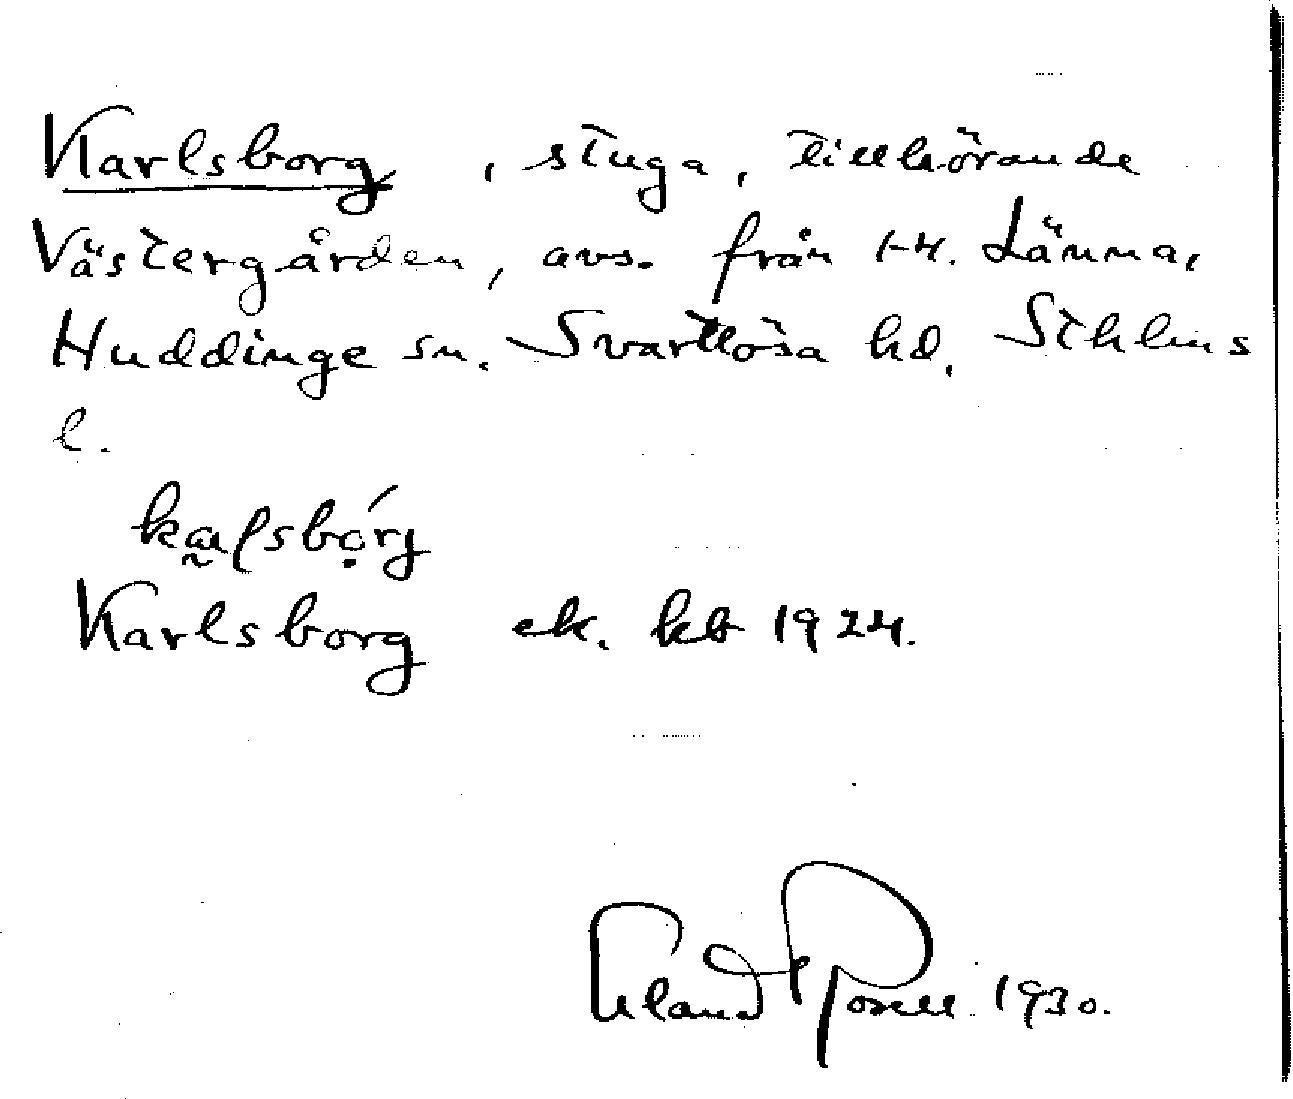 Karlsborg, stuga, tillhörande
Västergården, avs. från 1/4. Länna,
Huddinge sn. Svartlösa hd, Sthlms
l.
Karlsborg ek. kb 1924.
1930.